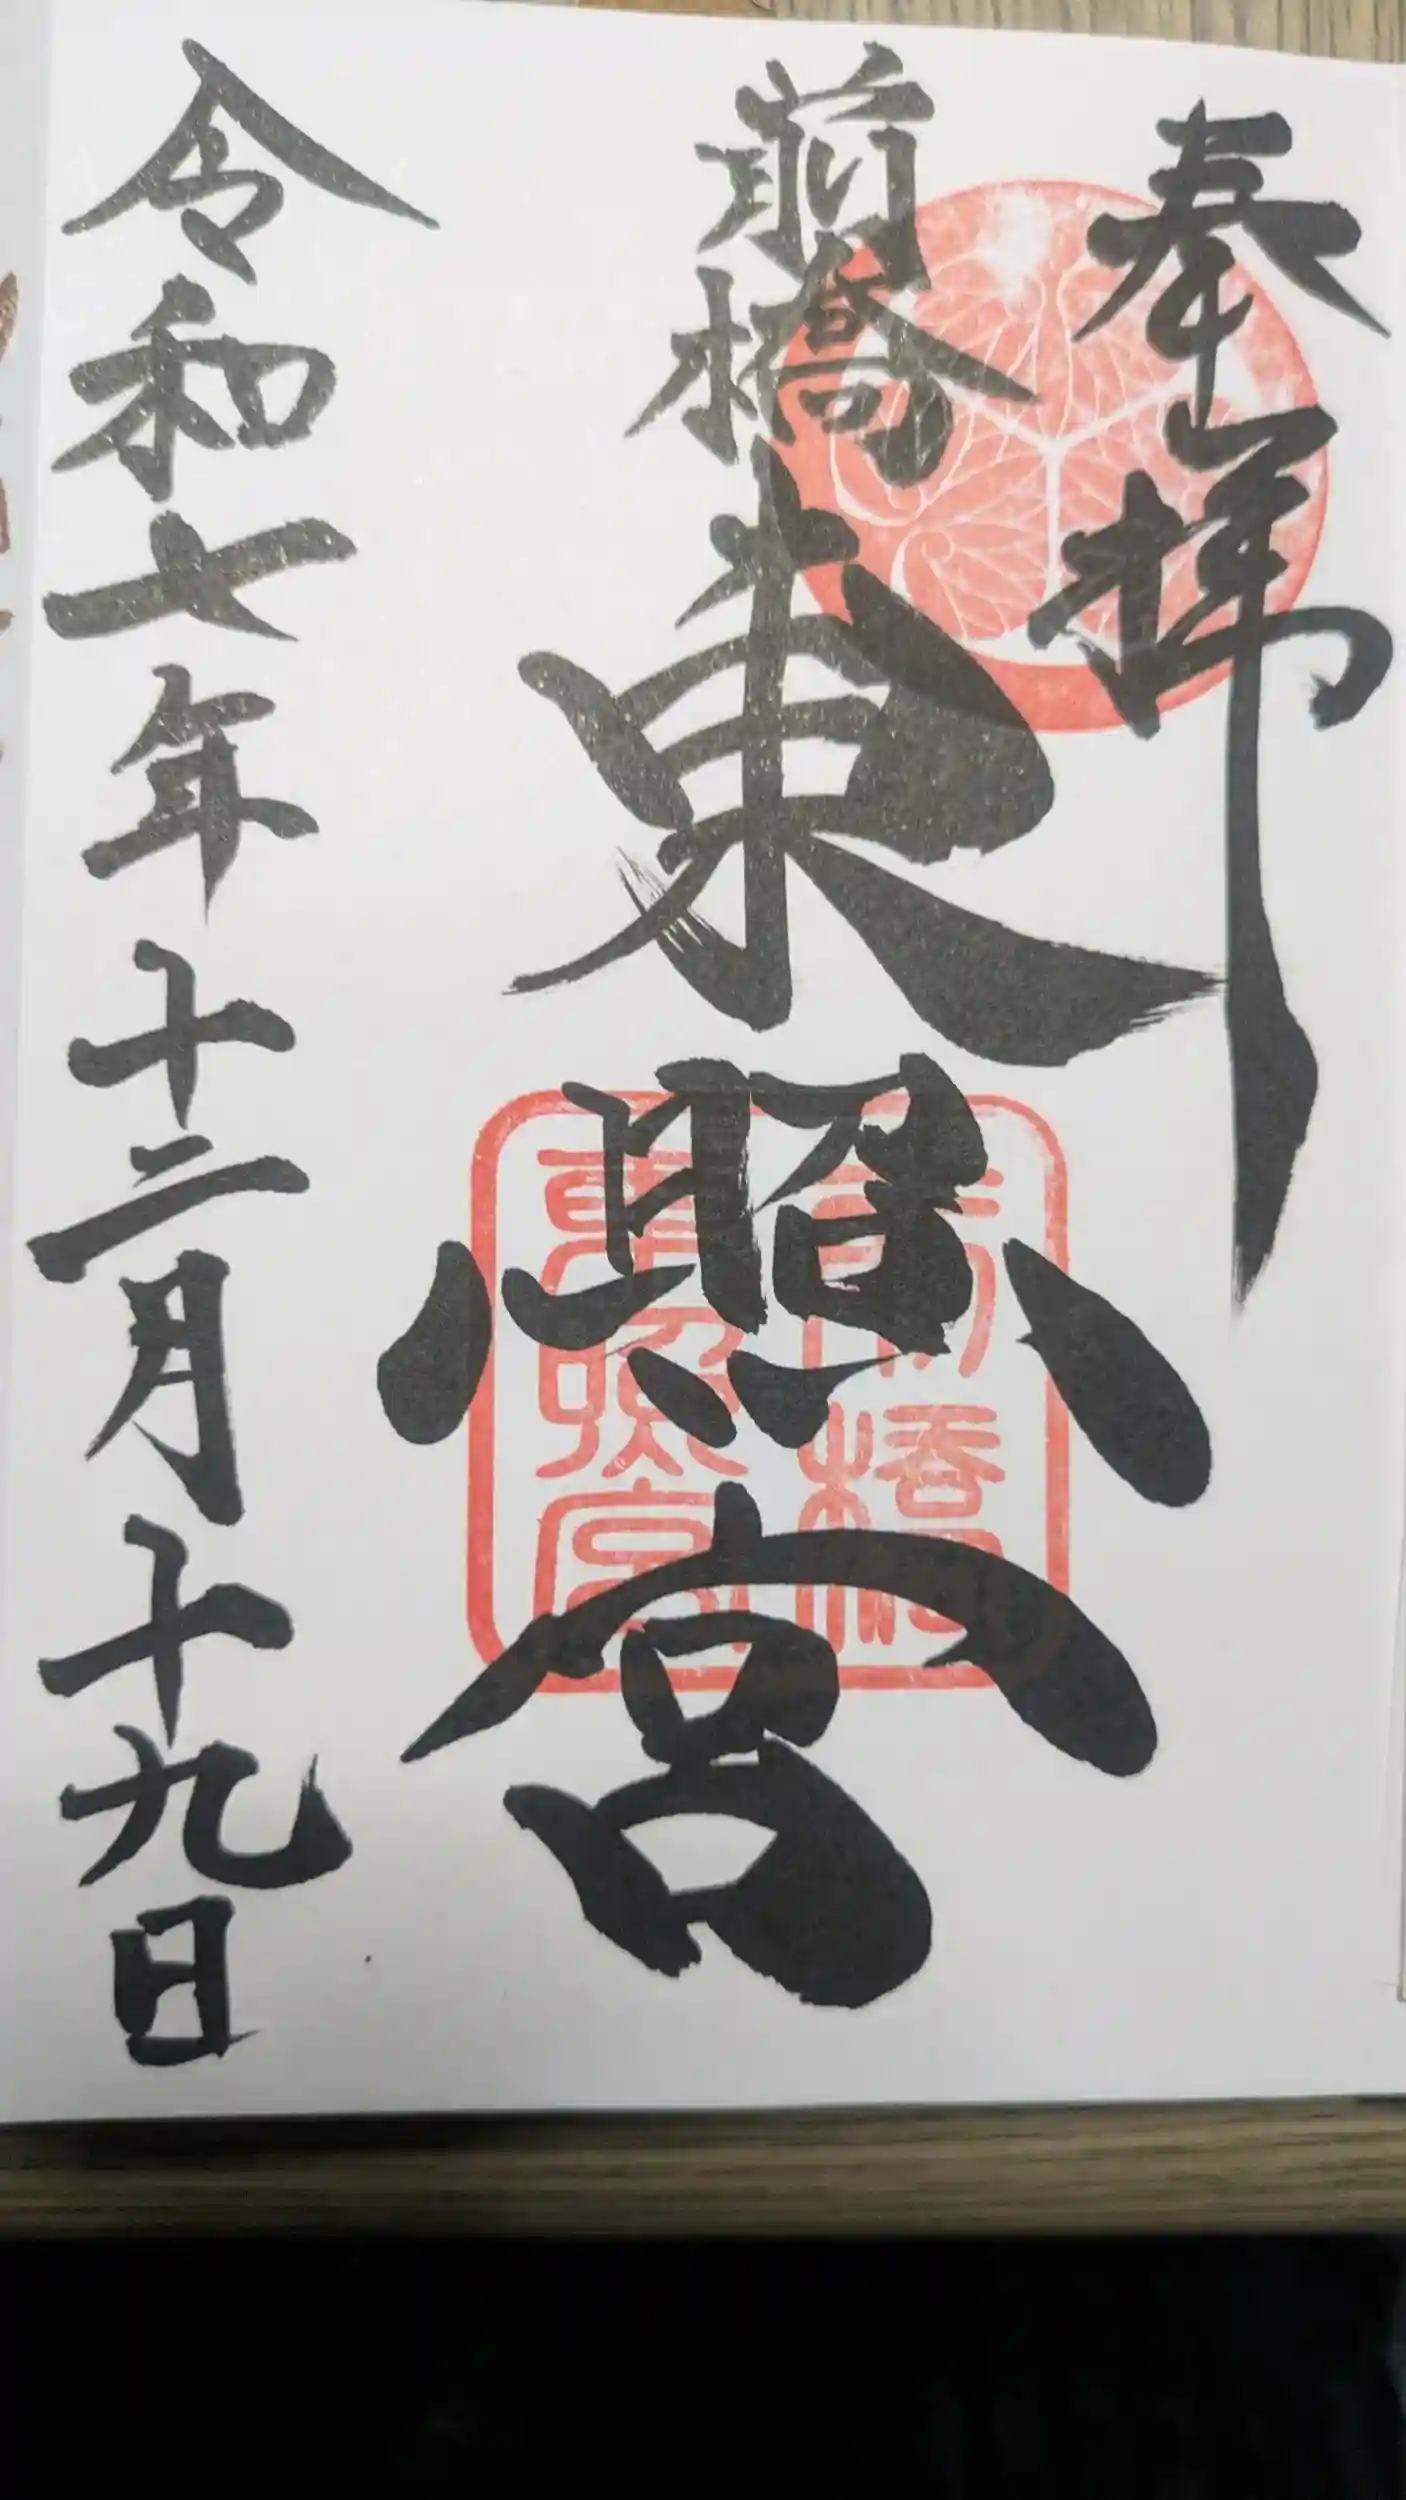 奉拝
前橋東照宮
前橋
東照宮
令和七年十二月十九日